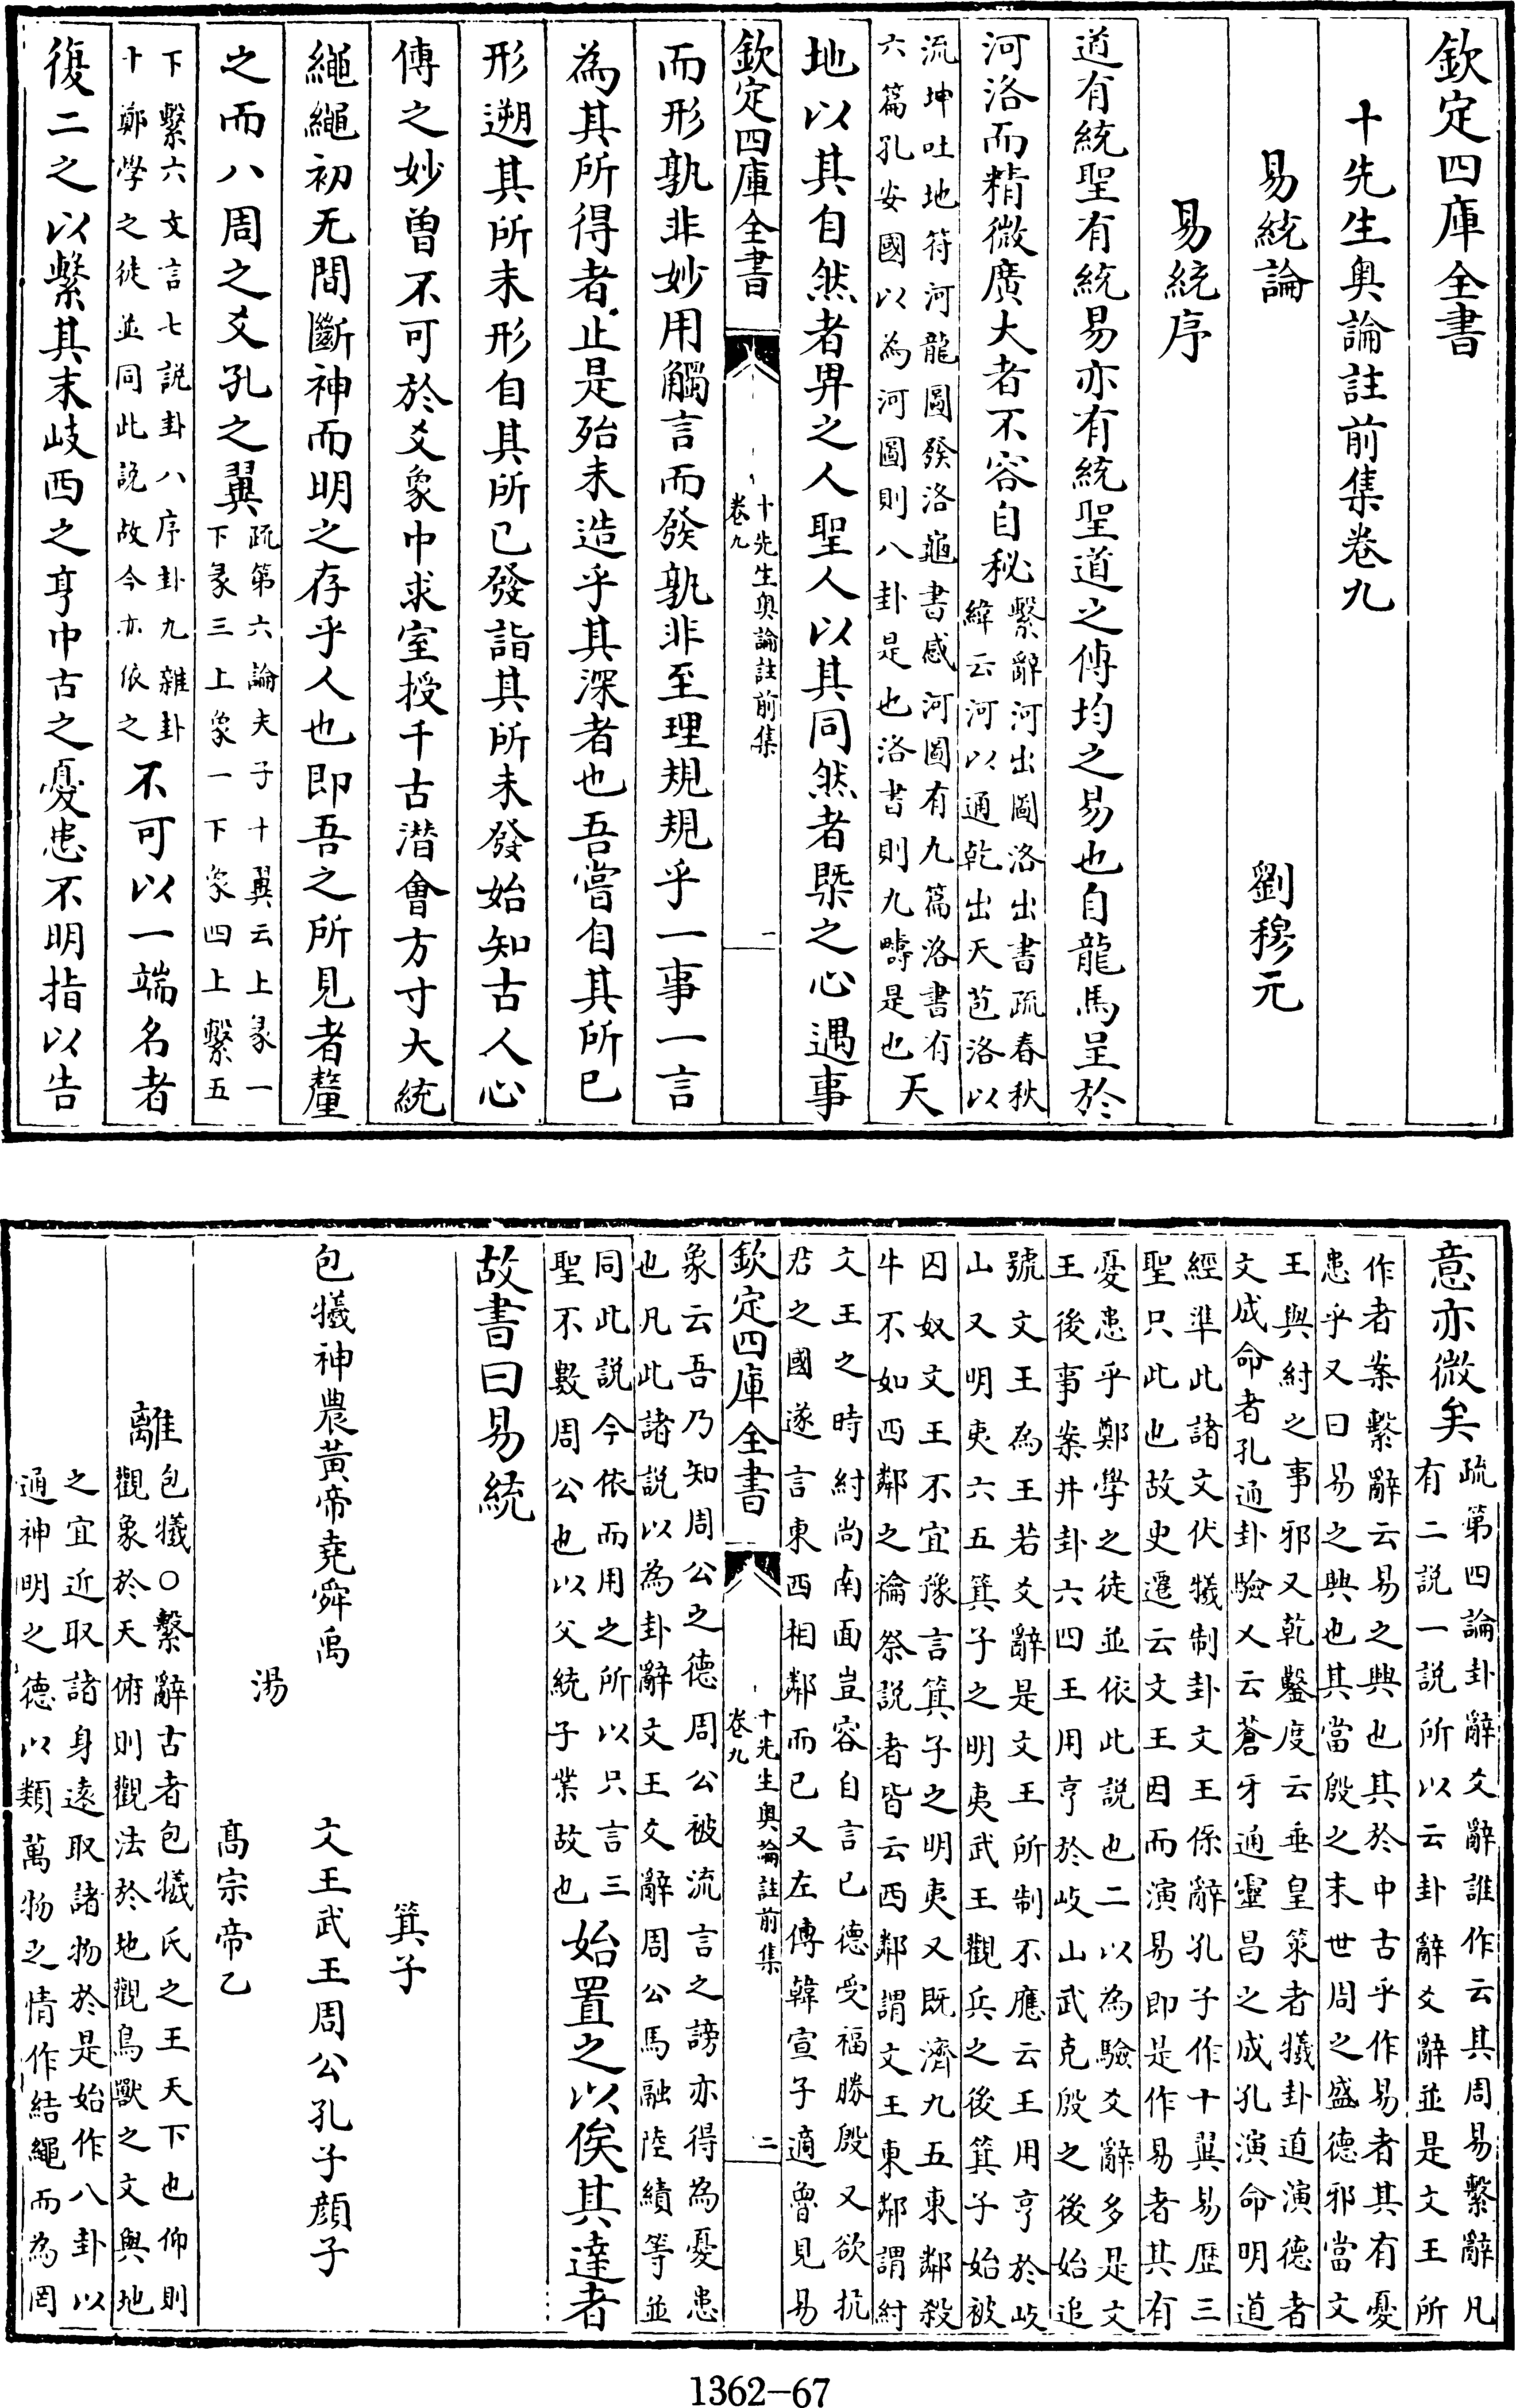 欽定四庫全書
十先生奥論註前集卷九
易統論　劉穆元
易統序
道有統聖有統易亦有統聖道之傳均之易也自龍馬呈於
河洛而精微廣大者不容自秘繫辭河出圖洛出書疏春秋
緯云河以通乾出天苞洛以
流坤吐地符河龍圖發洛龜書感河圖有九篇洛書有
六篇孔安國以為河圖則八卦是也洛書則九疇是也天
地以其自然者畀之人聖人以其同然者槩之心遇事
欽定四庫全書
十先生奥論註前集
卷九
一
而形孰非妙用觸言而發孰非至理規規乎一事一言
為其所得者止是殆未造乎其深者也吾嘗自其所已
形遡其所未形自其所已發詣其所未發始知古人心
傳之妙曾不可於爻象中求室授千古潛會方寸大統
繩繩初无間斷神而明之存乎人也即吾之所見者釐
之而八周之爻孔之翼疏第六論夫子十翼云上彖一
下彖三上象一下象四上繫五
下繫六文言七説卦八序卦九雜卦
十鄭學之徒並同此説故今亦依之不可以一端名者
復二之以繫其末岐西之亨中古之憂患不明指以告
意亦微矣疏第四論卦辭爻辭誰作云其周易繫辭凡
有二説一説所以云卦辭爻辭並是文王所
作者案繫辭云易之興也其於中古乎作易者其有憂
患乎又曰易之興也其當殷之末世周之盛德邪當文
王與紂之事邪又乾鑿度云垂皇策者犧卦道演德者
文成命者孔通卦驗又云蒼牙通靈昌之成孔演命明道
經準此諸文伏犧制卦文王係辭孔子作十翼易歴三
聖只此也故史遷云文王因而演易即是作易者其有
憂患乎鄭學之徒並依此説也二以為驗爻辭多是文
王後事案井卦六四王用亨於岐山武克殷之後始追
號文王為王若爻辭是文王所制不應云王用亨於岐
山又明夷六五箕子之明夷武王觀兵之後箕子始被
囚奴文王不宜豫言箕子之明夷又既濟九五東鄰殺
牛不如西鄰之禴祭説者皆云西鄰謂文王東鄰謂紂
文王之時紂尚南面豈容自言己德受福勝殷又欲抗
君之國遂言東西相鄰而已又左傳韓宣子適魯見易
欽定四庫全書
十先生奥論註前集
卷九
二
象云吾乃知周公之德周公被流言之謗亦得為憂患
也凡此諸説以為卦辭文王爻辭周公馬融陸績等並
同此説今依而用之所以只言三
聖不數周公也以父統子業故也始置之以俟其達者
故書曰易統
箕子
包犧神農黄帝堯舜禹　文王武王周公孔子顔子
湯
髙宗帝乙
離包犧○繫辭古者包犧氏之王天下也仰則
觀象於天俯則觀法於地觀鳥獸之文與地
之宜近取諸身逺取諸物於是始作八卦以
通神明之德以類萬物之情作結繩而為罔
1362-67